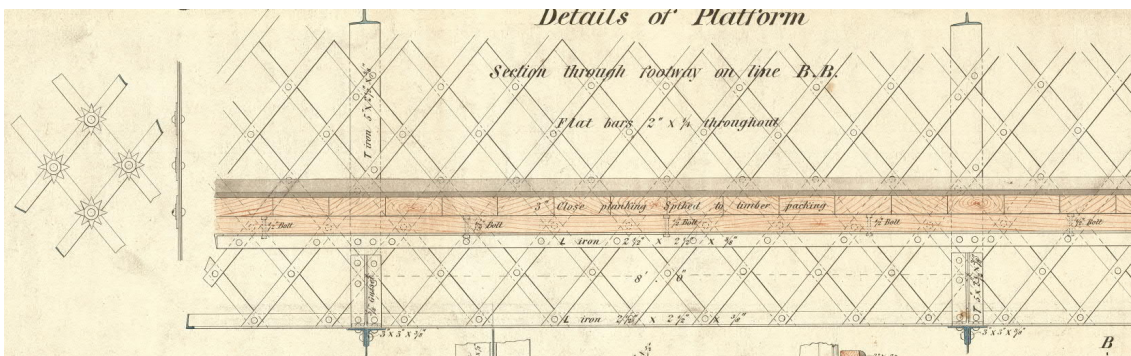 Details of Platform
Section through footway on line B.B.
Flat bars 2" x ¼ throughout
T iron 5" x
3" Close planking Spiked to timber packing
½" Bolt
½" Bolt
½" Bolt
½" Bolt
½" Bolt
L iron 2½" x 2½" x ⅜"
8'. 0"
L iron 2½" x 2½" x ⅜"
3" x 3" x ⅜"
3" x 3" x ⅜"
B